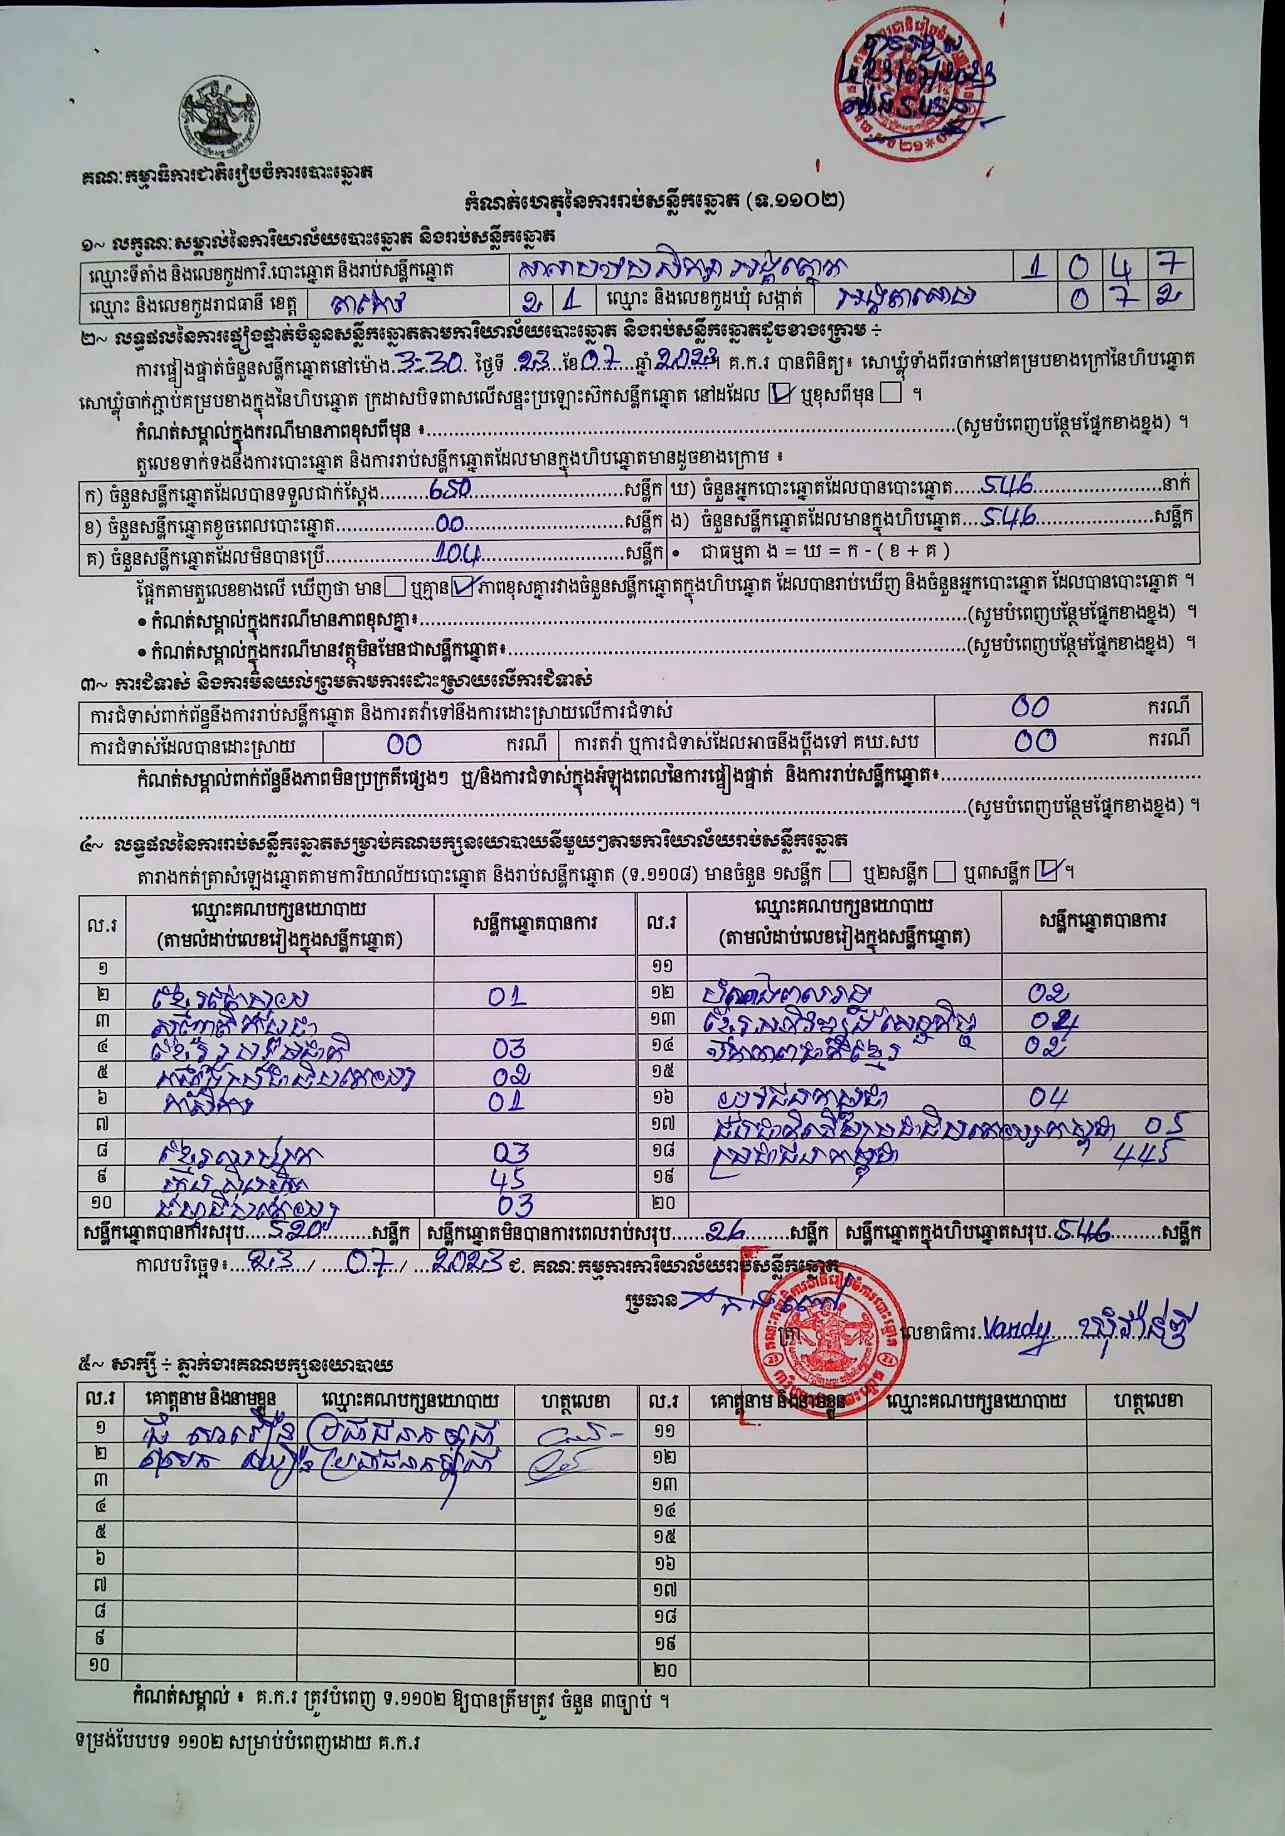 គណៈកម្មាធិការជាតិរៀបចំការបោះឆ្នោត
កំណត់ហេតុនៃការរាប់សន្លឹកឆ្នោត (ទ.១១០២)
១~ លក្ខណៈសម្គាល់នៃការិយាល័យបោះឆ្នោត និងរាប់សន្លឹកឆ្នោត
ឈ្មោះទីតាំង និងលេខកូដការិ.បោះឆ្នោត និងរាប់សន្លឹកឆ្នោត 1 0 4 7
ឈ្មោះ និងលេខកូដរាជធានី ខេត្ត តាកែវ 2 1 ឈ្មោះ និងលេខកូដឃុំ សង្កាត់ 0 7 2
២~ លទ្ធផលនៃការផ្ទៀងផ្ទាត់ចំនួនសន្លឹកឆ្នោតតាមការិយាល័យបោះឆ្នោត និងរាប់សន្លឹកឆ្នោតដូចខាងក្រោម ÷
ការផ្ទៀងផ្ទាត់ចំនួនសន្លឹកឆ្នោតនៅម៉ោង 3:30 ថ្ងៃទី 23 ខែ 07 ឆ្នាំ 2023 ។ គ.ក.រ បានពិនិត្យ៖ សោឃ្លុំទាំងពីរចាក់នៅគម្របខាងក្រៅនៃហិបឆ្នោត
សោឃ្លុំចាក់ភ្ជាប់គម្របខាងក្នុងនៃហិបឆ្នោត ក្រដាសបិទពាសលើសន្ទះប្រឡោះស៊កសន្លឹកឆ្នោត នៅដដែល ឬខុសពីមុន ។
កំណត់សម្គាល់ក្នុងករណីមានភាពខុសពីមុន ៖ (សូមបំពេញបន្ថែមផ្នែកខាងខ្នង) ។
តួលេខទាក់ទងនឹងការបោះឆ្នោត និងការរាប់សន្លឹកឆ្នោតដែលមានក្នុងហិបឆ្នោតមានដូចខាងក្រោម ៖
ក) ចំនួនសន្លឹកឆ្នោតដែលបានទទួលជាក់ស្តែង 650 សន្លឹក ឃ) ចំនួនអ្នកបោះឆ្នោតដែលបានបោះឆ្នោត 546 នាក់
ខ) ចំនួនសន្លឹកឆ្នោតខូចពេលបោះឆ្នោត 00 សន្លឹក ង) ចំនួនសន្លឹកឆ្នោតដែលមានក្នុងហិបឆ្នោត 546 សន្លឹក
គ) ចំនួនសន្លឹកឆ្នោតដែលមិនបានប្រើ 104 សន្លឹក • ជាធម្មតា ង = ឃ = ក - ( ខ + គ )
ផ្អែកតាមតួលេខខាងលើ ឃើញថា មាន ឬគ្មាន ភាពខុសគ្នារវាងចំនួនសន្លឹកឆ្នោតក្នុងហិបឆ្នោត ដែលបានរាប់ឃើញ និងចំនួនអ្នកបោះឆ្នោត ដែលបានបោះឆ្នោត ។
• កំណត់សម្គាល់ក្នុងករណីមានភាពខុសគ្នា៖ (សូមបំពេញបន្ថែមផ្នែកខាងខ្នង) ។
• កំណត់សម្គាល់ក្នុងករណីមានវត្ថុមិនមែនជាសន្លឹកឆ្នោត៖ (សូមបំពេញបន្ថែមផ្នែកខាងខ្នង) ។
៣~ ការជំទាស់ និងការមិនយល់ព្រមតាមការដោះស្រាយលើការជំទាស់
ការជំទាស់ពាក់ព័ន្ធនឹងការរាប់សន្លឹកឆ្នោត និងការតវ៉ាទៅនឹងការដោះស្រាយលើការជំទាស់ 00 ករណី
ការជំទាស់ដែលបានដោះស្រាយ 00 ករណី ការតវ៉ា ឬការជំទាស់ដែលអាចនឹងប្តឹងទៅ គឃ.សប 00 ករណី
កំណត់សម្គាល់ពាក់ព័ន្ធនឹងភាពមិនប្រក្រតីផ្សេងៗ ឬ/និងការជំទាស់ក្នុងអំឡុងពេលនៃការផ្ទៀងផ្ទាត់ និងការរាប់សន្លឹកឆ្នោត៖
(សូមបំពេញបន្ថែមផ្នែកខាងខ្នង) ។
៤~ លទ្ធផលនៃការរាប់សន្លឹកឆ្នោតសម្រាប់គណបក្សនយោបាយនីមួយៗតាមការិយាល័យរាប់សន្លឹកឆ្នោត
តារាងកត់ត្រាសំឡេងឆ្នោតតាមការិយាល័យបោះឆ្នោត និងរាប់សន្លឹកឆ្នោត (ទ.១១០៨) មានចំនួន ១សន្លឹក ឬ២សន្លឹក ឬ៣សន្លឹក ។
ល.រ ឈ្មោះគណបក្សនយោបាយ (តាមលំដាប់លេខរៀងក្នុងសន្លឹកឆ្នោត) សន្លឹកឆ្នោតបានការ ល.រ ឈ្មោះគណបក្សនយោបាយ (តាមលំដាប់លេខរៀងក្នុងសន្លឹកឆ្នោត) សន្លឹកឆ្នោតបានការ
១ ១១
២ 01 ១២ 02
៣ ១៣ ខ្មែរអភិវឌ្ឍន៍សេដ្ឋកិច្ច 04
៤ ខ្មែររួបរួមជាតិ 03 ១៤ ឯកភាពជាតិខ្មែរ 02
៥ 02 ១៥
៦ កសិករ 01 ១៦ យុវជនកម្ពុជា 04
៧ ១៧ 05
៨ 03 ១៨ ប្រជាជនកម្ពុជា 445
៩ 45 ១៩
១០ 03 ២០
សន្លឹកឆ្នោតបានការសរុប 520 សន្លឹក សន្លឹកឆ្នោតមិនបានការពេលរាប់សរុប 26 សន្លឹក សន្លឹកឆ្នោតក្នុងហិបឆ្នោតសរុប 546 សន្លឹក
កាលបរិច្ឆេទ៖ 23 / 07 / 2023 ជ. គណៈកម្មការការិយាល័យរាប់សន្លឹកឆ្នោត
ប្រធាន ត្រា លេខាធិការ Vandy
៥~ សាក្សី ÷ ភ្នាក់ងារគណបក្សនយោបាយ
ល.រ គោត្តនាម និងនាមខ្លួន ឈ្មោះគណបក្សនយោបាយ ហត្ថលេខា ល.រ គោត្តនាម និងនាមខ្លួន ឈ្មោះគណបក្សនយោបាយ ហត្ថលេខា
១ ប្រជាជនកម្ពុជា ១១
២ ប្រជាជនកម្ពុជា ១២
៣ ១៣
៤ ១៤
៥ ១៥
៦ ១៦
៧ ១៧
៨ ១៨
៩ ១៩
១០ ២០
កំណត់សម្គាល់ ៖ គ.ក.រ ត្រូវបំពេញ ទ.១១០២ ឱ្យបានត្រឹមត្រូវ ចំនួន ៣ច្បាប់ ។
ទម្រង់បែបបទ ១១០២ សម្រាប់បំពេញដោយ គ.ក.រ